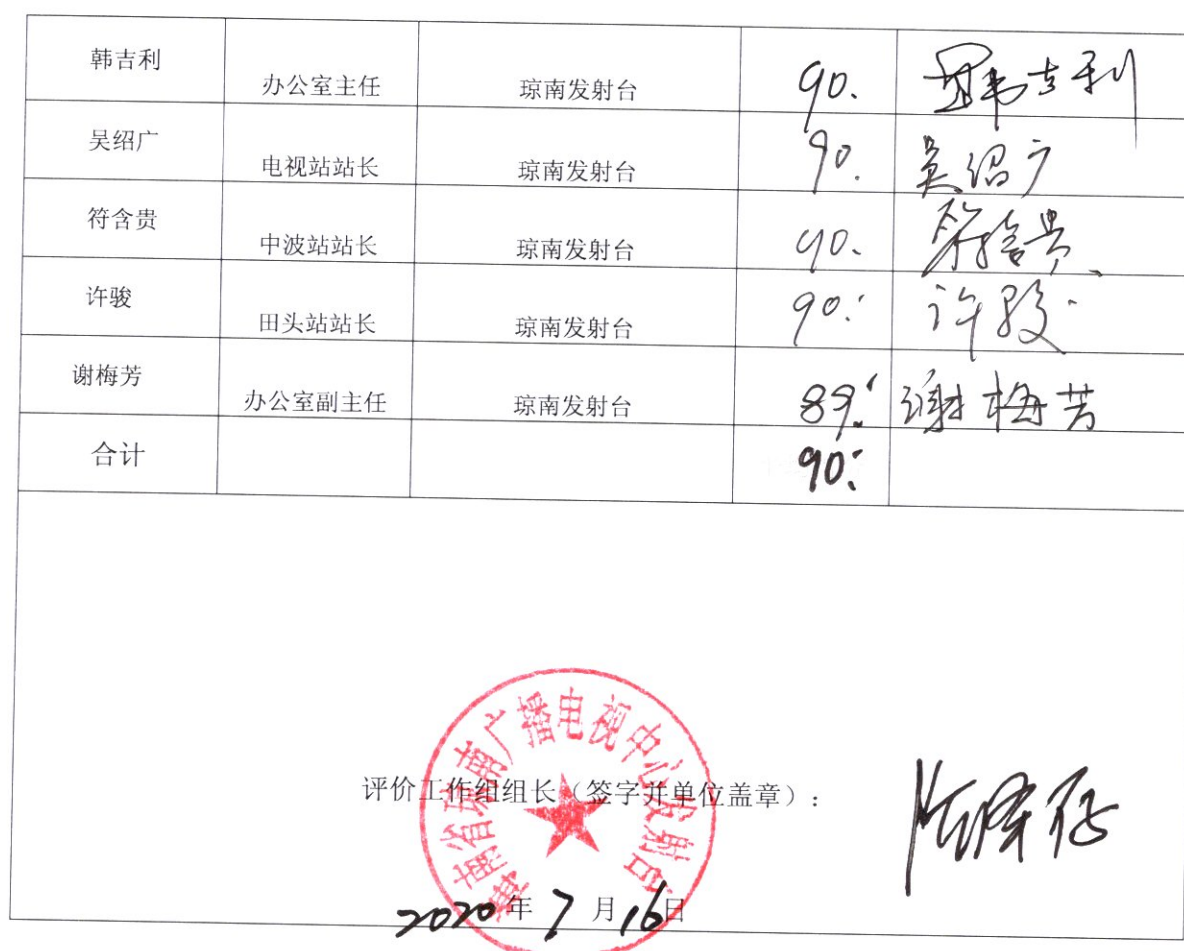 韩吉利 办公室主任 琼南发射台 90. 韩吉利
吴绍广 电视站站长 琼南发射台 90. 吴绍广
符含贵 中波站站长 琼南发射台 90. 符含贵
许骏 田头站站长 琼南发射台 90. 许骏
谢梅芳 办公室副主任 琼南发射台 89. 谢梅芳
合计 90.
海南省琼南广播电视中心发射台
评价工作组组长（签字并单位盖章）：
2020年7月16日